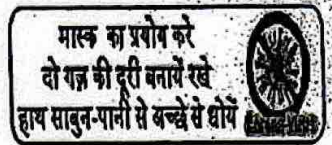 मास्क का प्रयोग करे
दो गज़ की दूरी बनायें रखे
हाथ साबुन-पानी से अच्छे से धोयें